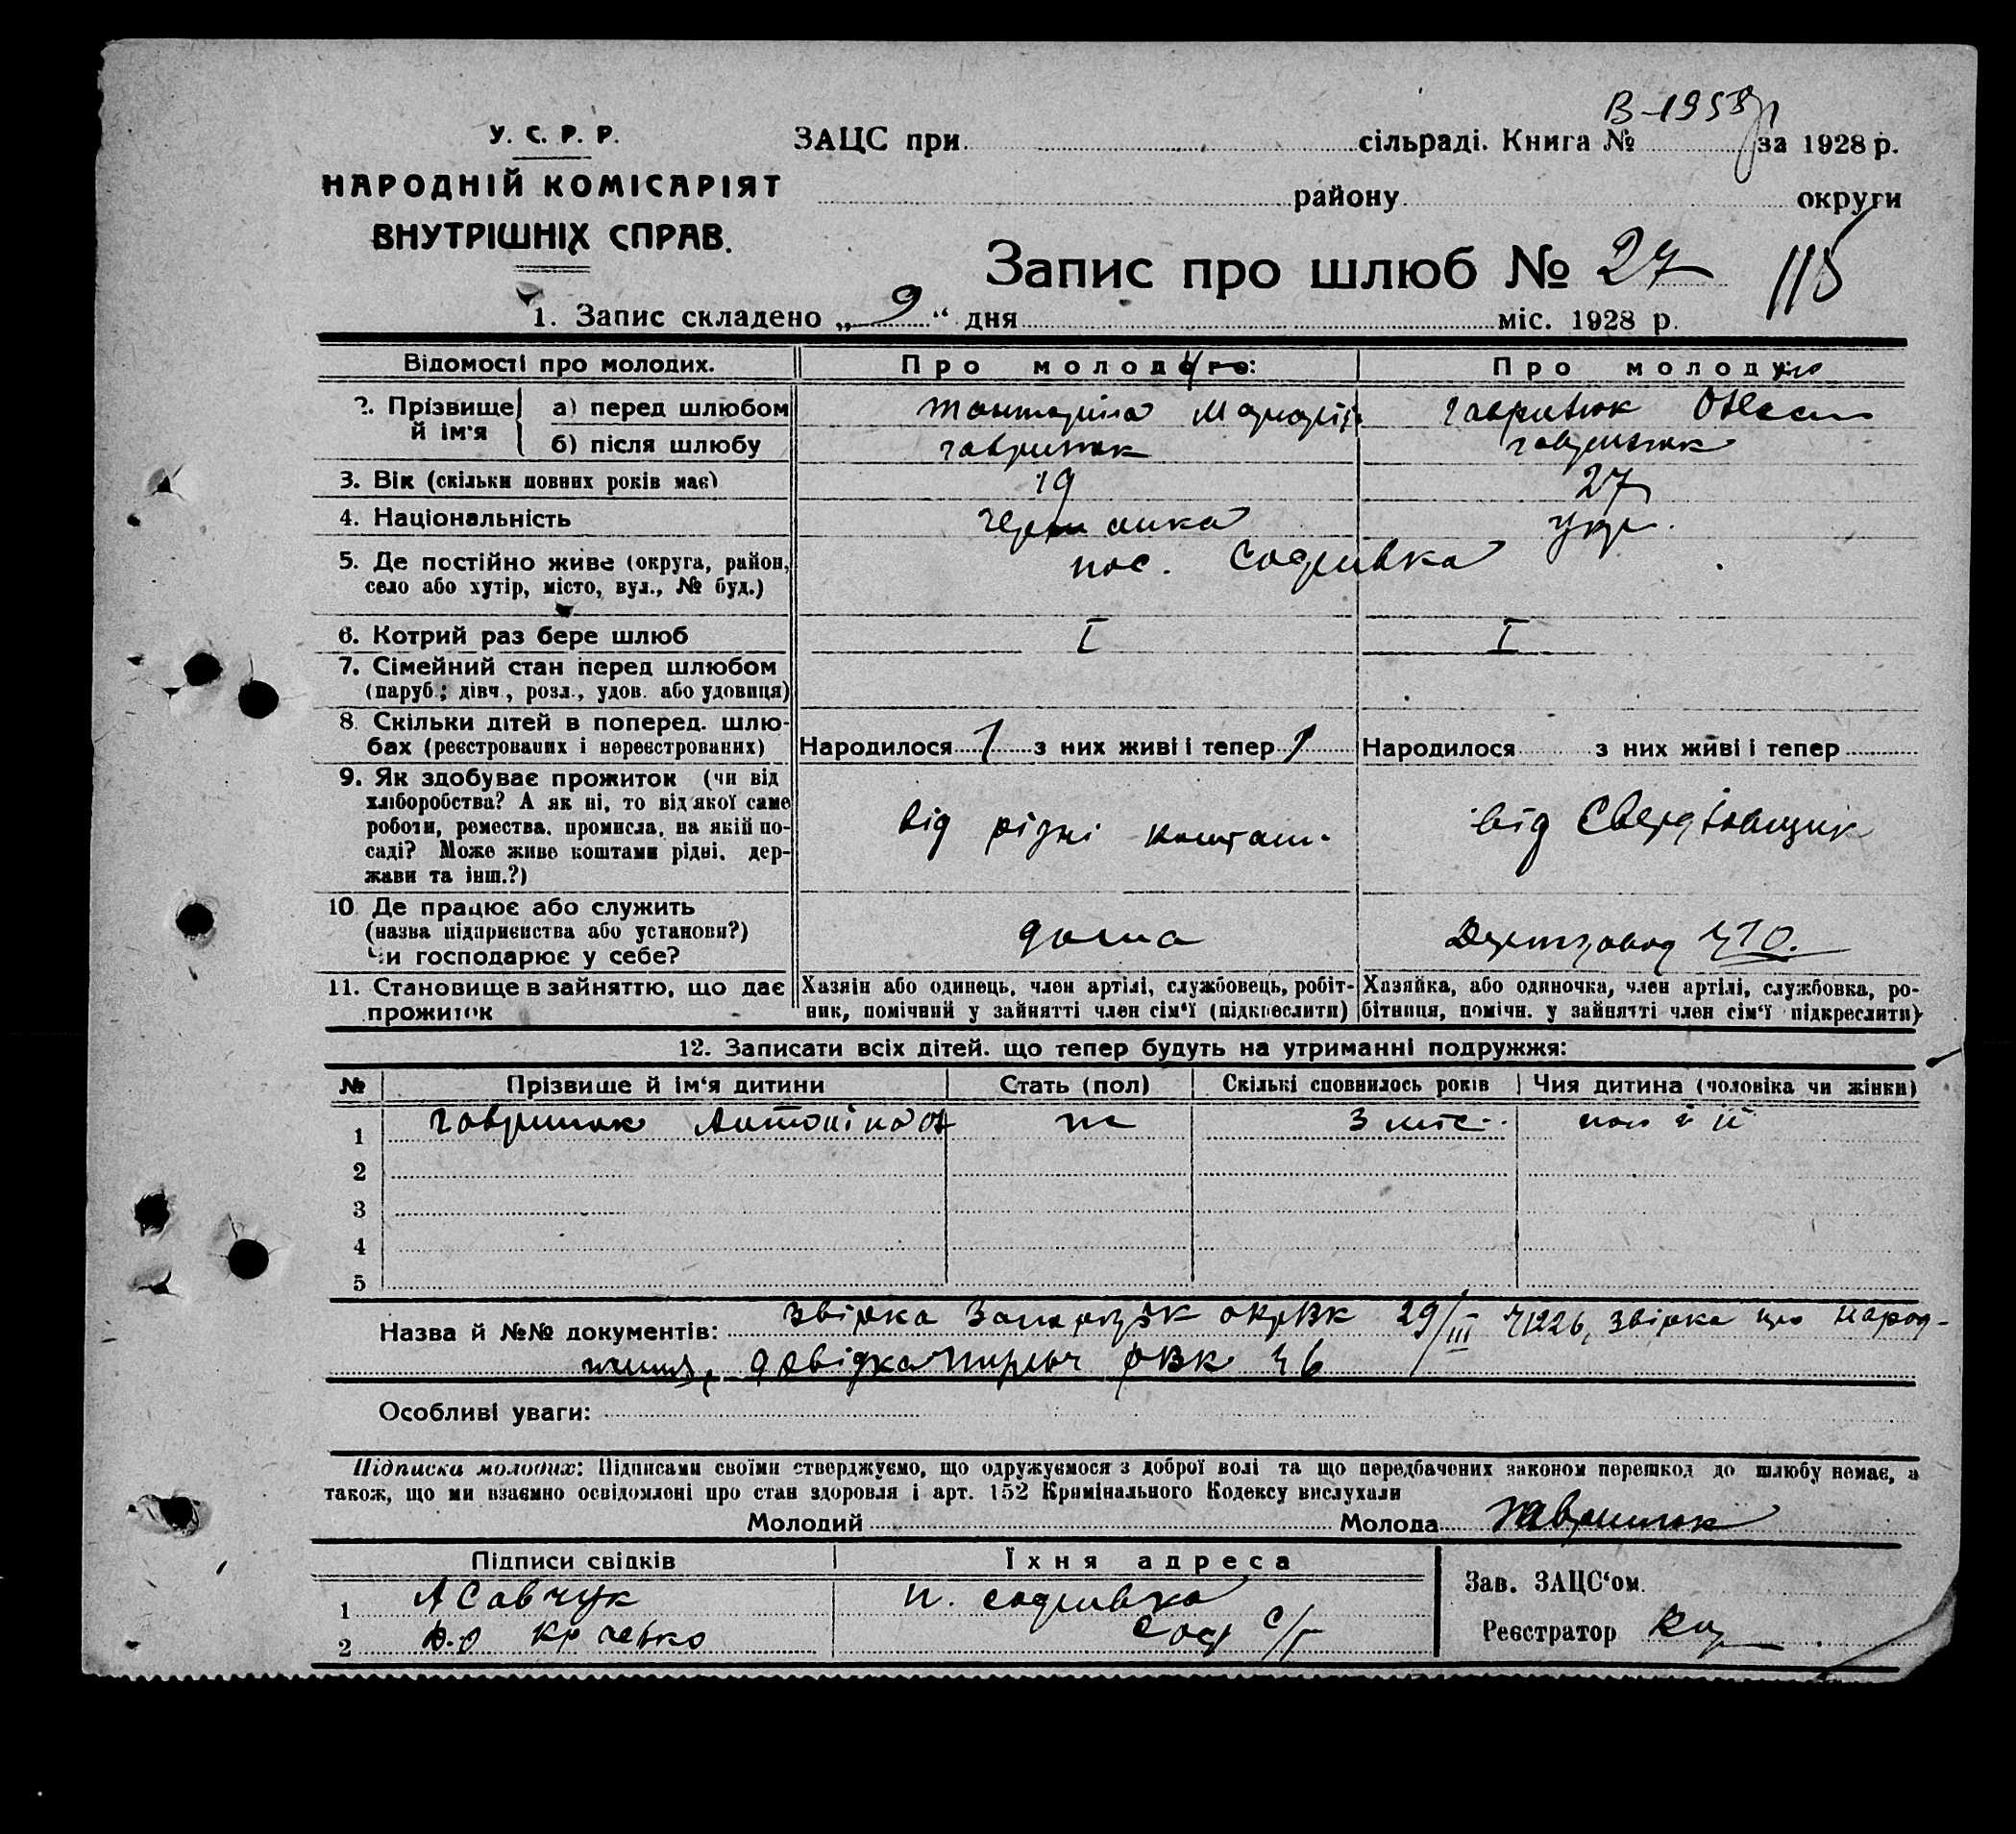 В-1958р
У. С. Р. Р.
ЗАЦС при сільраді. Книга № за 1928 р.
НАРОДНІЙ КОМІСАРІЯТ
району округи
ВНУТРІШНІХ СПРАВ.
Запис про шлюб № 27 115
1. Запис складено „ 9 “ дня міс. 1928 р.
Відомості про молодих. Про молодого: Про молоду
2. Прізвище й ім'я а) перед шлюбом гаврилюк
б) після шлюбу гаврилюк гаврилюк
3. Вік (скільки повних років має) 19 27
4. Національність укр.
5. Де постійно живе (округа, район, пос. Содривка
село або хутір, місто, вул., № буд.)
6. Котрий раз бере шлюб I I
7. Сімейний стан перед шлюбом
(паруб.; дівч., розл., удов. або удовиця)
8. Скільки дітей в поперед. шлю-
бах (реєстрованих і нереєстрованих) Народилося 1 з них живі і тепер 1 Народилося з них живі і тепер
9. Як здобуває прожиток (чи від
хліборобства? А як ні, то від якої саме
роботи, ремества, промисла, на якій по- від різні коштам.
саді? Може живе коштами рідні, дер- від
жави та інш.?)
10. Де працює або служить
(назва підприємства або установи?) дома
Чи господарює у себе?
11. Становище в зайняттю, що дає Хазяїн або одинець, член артілі, службовець, робіт- Хазяйка, або одиночка, член артілі, службовка, ро-
прожиток ник, помічний у зайнятті член сім'ї (підкреслити) бітниця, помічн. у зайнятті член сім'ї підкреслити)
12. Записати всіх дітей. що тепер будуть на утриманні подружжя:
№ Прізвище й ім'я дитини Стать (пол) Скількі сповнилось років Чия дитина (чоловіка чи жінки)
1 гаврилюк Антоніна ж 3 міс.
2
3
4
5
Назва й №№ документів: звірка окрвк 29/III 41226, звірка про народ-
ження, довідка РВК 46
Особливі уваги:
Підписка молодих: Підписами своїми стверджуємо, що одружуємося з доброї волі та що передбачених законом перешкод до шлюбу немає, а
також, що ми взаємно освідомлені про стан здоровля і арт. 152 Крямінального Кодексу вислухали
Молодий Молода Гаврилюк
Підписи свідків Їхня адреса
Зав. ЗАЦС'ом
1 А Савчук п. содривка
2 Сод с/г
Реєстратор